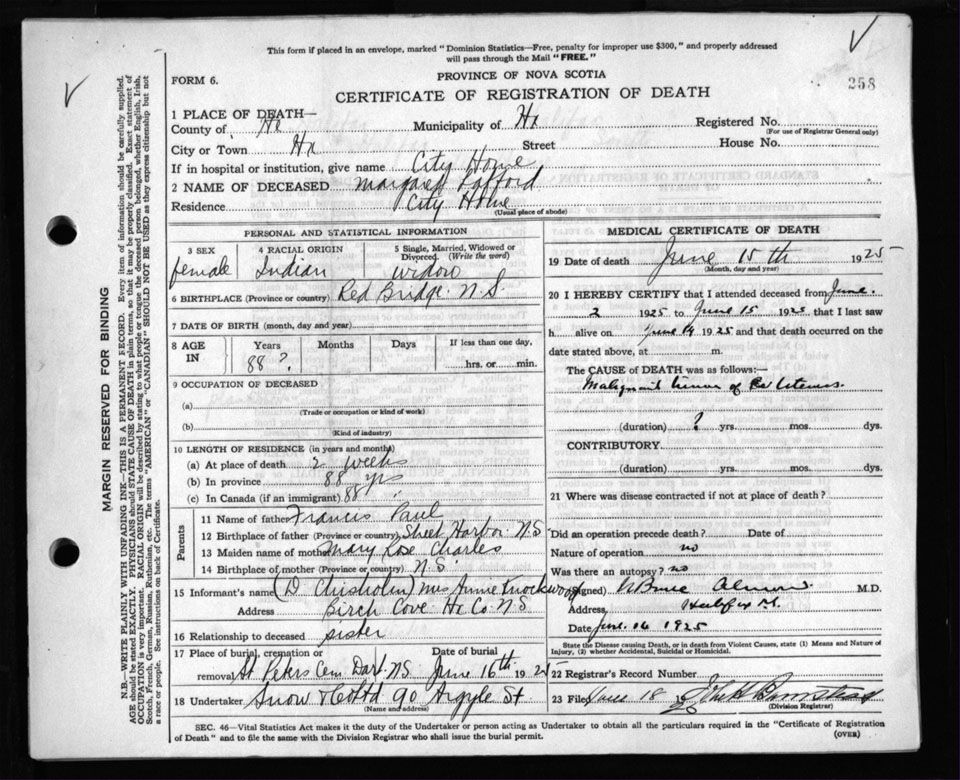 This form if placed in an envelope, marked "Dominion Statistics—Free, penalty for improper use $300," and properly addressed
will pass through the Mail "FREE."
FORM 6.
PROVINCE OF NOVA SCOTIA
258
CERTIFICATE OF REGISTRATION OF DEATH
1 PLACE OF DEATH—
County of Hx Municipality of Hx Registered No.
(For use of Registrar General only)
City or Town Hx Street House No.
If in hospital or institution, give name City Home
2 NAME OF DECEASED Margaret
Residence City Home
(Usual place of abode)
PERSONAL AND STATISTICAL INFORMATION
3 SEX female
4 RACIAL ORIGIN Indian
5 Single, Married, Widowed or Divorced. (Write the word) widow
6 BIRTHPLACE (Province or country) Red Bridge. N.S.
7 DATE OF BIRTH (month, day and year)
8 AGE IN Years Months Days If less than one day,
88 ? hrs. or min.
9 OCCUPATION OF DECEASED
(a)
(Trade or occupation or kind of work)
(b)
(Kind of industry)
10 LENGTH OF RESIDENCE (in years and months)
(a) At place of death 2 weeks
(b) In province 88 yrs
(c) In Canada (if an immigrant) 88
Parents
11 Name of father Francis Paul
12 Birthplace of father (Province or country) Sheet Harbor N.S.
13 Maiden name of mother Mary Rose Charles
14 Birthplace of mother (Province or country) N.S.
15 Informant's name (D Chisholm) Mrs Annie Knockwood
Address Birch Cove Hx Co. N.S
16 Relationship to deceased sister
17 Place of burial, cremation or removal Date of burial
St Peters Cem Dart. N.S June 16th 1925
18 Undertaker Snow & Co Ltd 90 Argyle St.
(Name and address)
MEDICAL CERTIFICATE OF DEATH
19 Date of death June 15th 1925
(Month, day and year)
20 I HEREBY CERTIFY that I attended deceased from June.
2 1925 to June 15 1925 that I last saw
h alive on June 14 1925 and that death occurred on the
date stated above, at m.
The CAUSE of DEATH was as follows:—
Malignant tumor of
(duration) ? yrs. mos. dys.
CONTRIBUTORY.
(duration) yrs. mos. dys.
21 Where was disease contracted if not at place of death?
Did an operation precede death? Date of
Nature of operation no
Was there an autopsy? no
(Signed) Bruce Almon M.D.
Address, Halifax N.S.
Date June. 16 1925
State the Disease causing Death, or in death from Violent Causes, state (1) Means and Nature of
Injury, (2) whether Accidental, Suicidal or Homicidal.
22 Registrar's Record Number
23 Filed June 18 19
(Division Registrar)
SEC. 46—Vital Statistics Act makes it the duty of the Undertaker or person acting as Undertaker to obtain all the particulars required in the "Certificate of Registration
of Death" and to file the same with the Division Registrar who shall issue the burial permit.
(OVER)
MARGIN RESERVED FOR BINDING
N.B.—WRITE PLAINLY WITH UNFADING INK—THIS IS A PERMANENT RECORD. Every item of information should be carefully supplied.
AGE should be stated EXACTLY. PHYSICIANS should STATE CAUSE OF DEATH in plain terms, so that it may be properly classified. Exact statement of
OCCUPATION is very important. RACIAL ORIGIN will be described by stating to what people or tongue the deceased person belonged, whether English, Irish,
Scotch, French, German, Russian, Ruthenian, etc. The terms "AMERICAN" or "CANADIAN" SHOULD NOT BE USED as they express citizenship but not
a race or people. See instructions on back of Certificate.